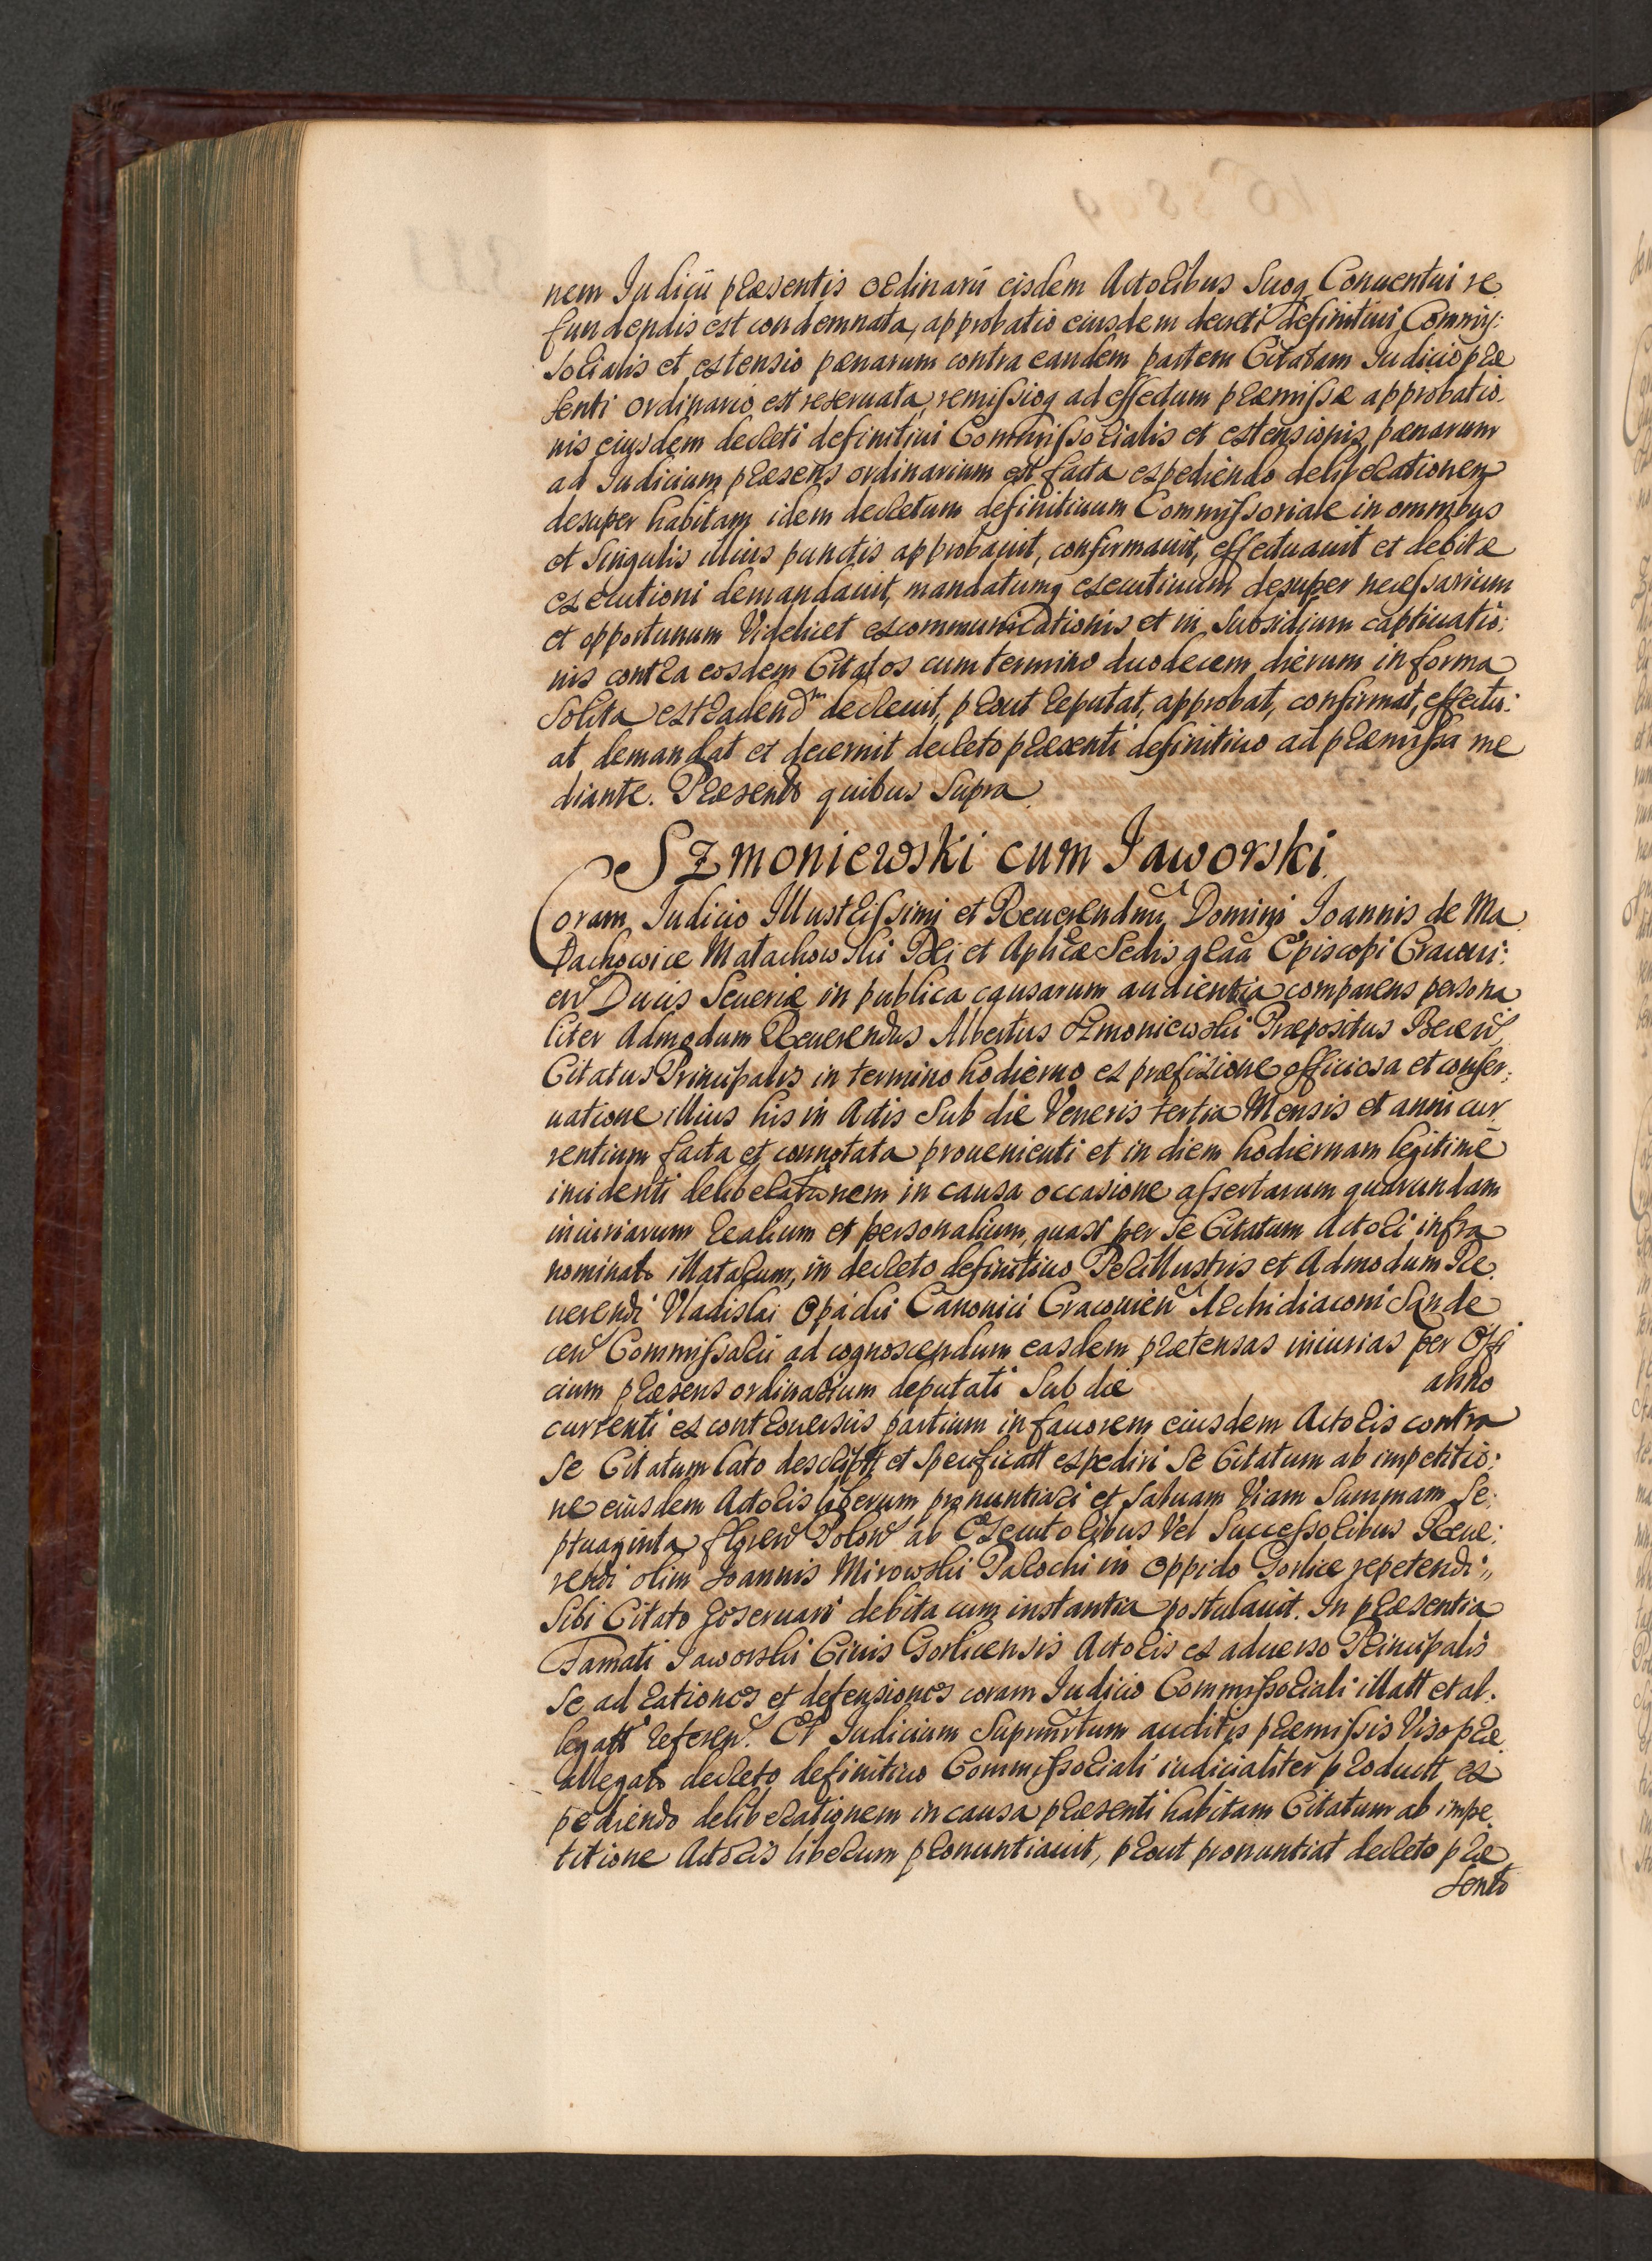 nem Judicii præsentis ordinarii eisdem Actoribus Suoq Conuentui re
fundendis est condemnata, approbatio eiusdem decreti definitiui Commis:
sorialis et extensio pænarum contra eandem partem Citatam Judicio præ
senti ordinario est reseruata, remissioq ad effectum præmissæ approbatio
nis eiusdem decreti definitiui Commissorialis et extensionis pænarum
ad Judicium præsens ordinarium est facta expediendo deliberationem
desuper habitam idem decretum definitiuum Commissoriale in omnibus
et Singulis illius punctis approbauit, confirmauit, effectuauit et debitæ
executioni demandauit, mandatumq executiuum desuper necessarium
et opportunum Videlicet excommunicationis et in Subsidium captiuatio:
nis contra eosdem Citatos cum termino duodecem dierum in forma
Solita extradend^m decreuit, prout reputat, approbat, confirmat, effectu:
at demandat et decernit decreto præsenti definitiuo ad præmissa me
diante. Præsentb quibus Supra
Szmoniewski cum Jaworski.
Coram Judicio Illustrissimi et Reuerendmi Domini Joannis de Ma
łachowice Małachowski Dei et Aplicæ Sedis graa Episcopi Cracoui:
en Ducis Seueriæ in publica causarum audientia comparens persona
liter Admodum Reuerendus Albertus Szmoniewski Præpositus Biecen
Citatus Principalis in termino hodierno ex præfixione officiosa et conser:
uatione illius his in Actis Sub die Veneris tertia Mensis et anni cur
rentium facta et connotata prouenienti et in diem hodiernam legitimè
incidenti deliberationem in causa occasione assertarum quarundam
iniuriarum realium et personalium, quasi per Se Citatum Actori infra
nominato illatarum, in decreto definitiuo Perillustris et Admodum Re
uerendi Vladislai Opacki Canonici Cracouien Archidiaconi Sande
cen Commissarii ad cognoscendum easdem prætensas iniurias per Offi
cium præsens ordinarium deputati Sub die anno
currenti ex controuersiis partium in fauorem eiusdem Actoris contra
Se Citatum lato descriptt et Specificatt expediri Se Citatum ab impetitio:
ne eiusdem Actoris liberum pronuntiari et Saluam Viam Summam Se:
ptuaginta floren Polon ab Executoribus Vel Successoribus Reue:
rendi olim Joannis Mirowski Parochi in Oppido Gorlice repetendi,,
Sibi Citato reseruari debita cum instantia postulauit. In præsentia
Famati Jaworski Ciuis Gorlicensis Actoris ex aduerso Principalis
Se ad rationes et defensiones coram Judicio Commissoriali illatt et al.
legatt referen. Et Judicium Supmrtum auditis præmissis Viso præ
allegato decreto definitiuo Commissoriali iudicialiter productt ex
pediendo deliberationem in causa præsenti habitam Citatum ab impe
titione Actoris liberum pronuntiauit, prout pronuntiat decreto præ
sentb